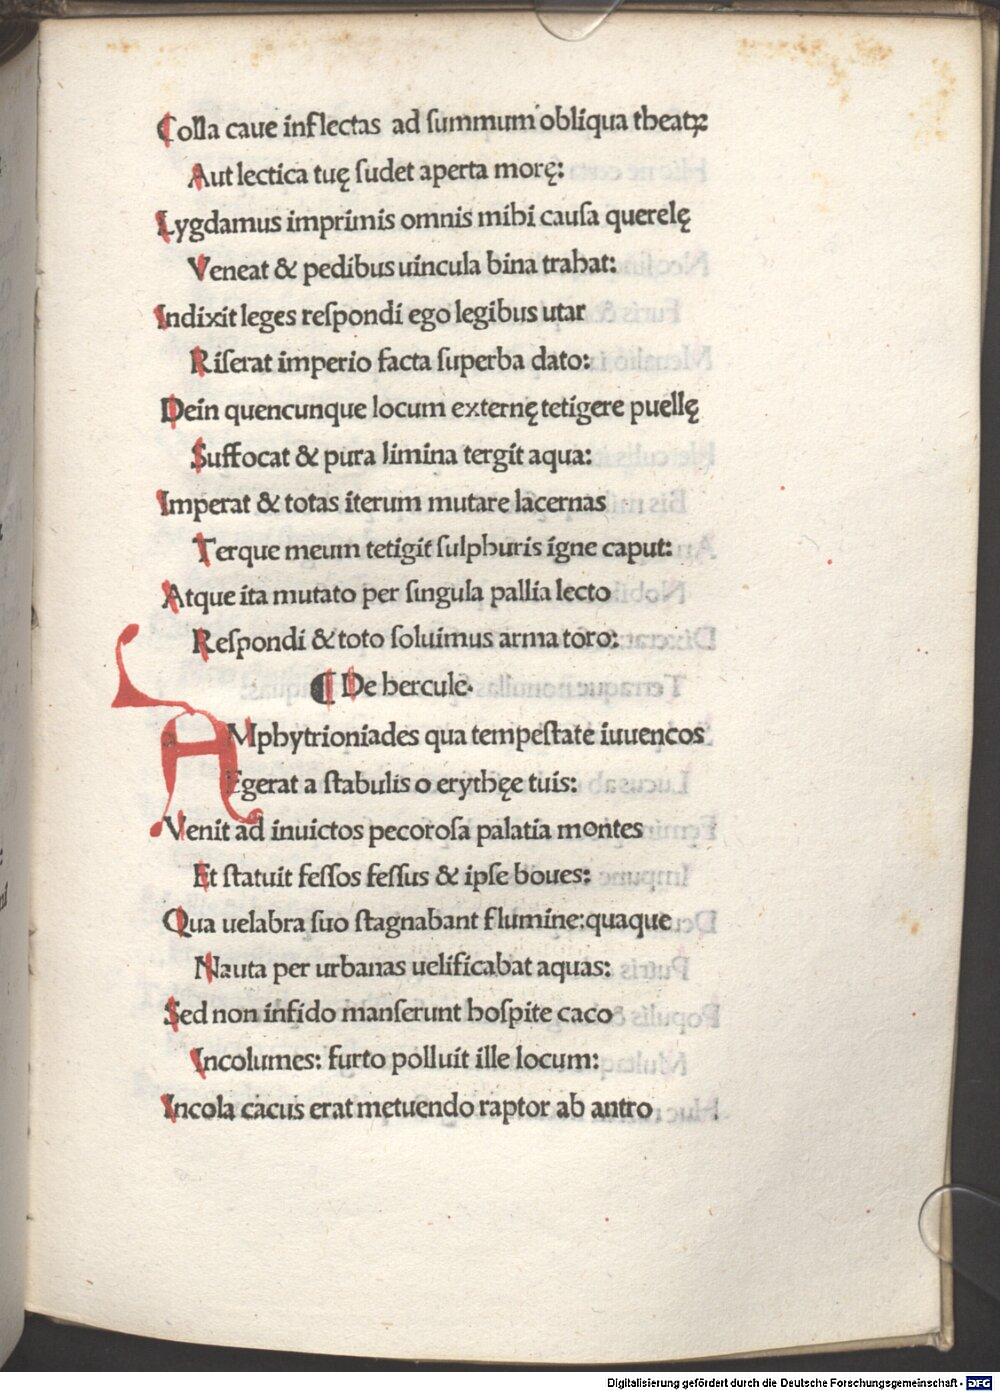 Colla caue inflectas ad ſummum obliqua theatꝝ
Aut lectica tuę ſudet aperta morę:
Lygdamus imprimis omnis mihi cauſa querelę
Veneat & pedibus uincula bina trahat:
Indixit leges reſpondi ego legibus utar
Riſerat imperio facta ſuperba dato:
Dein quencunque locum externę tetigere puellę
Suffocat & pura limina tergit aqua:
Imperat & totas iterum mutare lacernas
Terque meum tetigit ſulphuris igne caput:
Atque ita mutato per ſingula pallia lecto
Reſpondi & toto ſoluimus arma toro:
¶ De hercule.
AMphytrioniades qua tempeſtate iuuencos
Egerat a ſtabulis o erythęe tuis:
Venit ad inuictos pecoroſa palatia montes
Et ſtatuit feſſos feſſus & ipſe boues:
Qua uelabra ſuo ſtagnabant flumine:quaque
Nauta per urbanas uelificabat aquas:
Sed non infido manſerunt hoſpite caco
Incolumes: furto polluit ille locum:
Incola cacus erat metuendo raptor ab antro
Digitalisierung gefördert durch die Deutsche Forschungsgemeinschaft - DFG